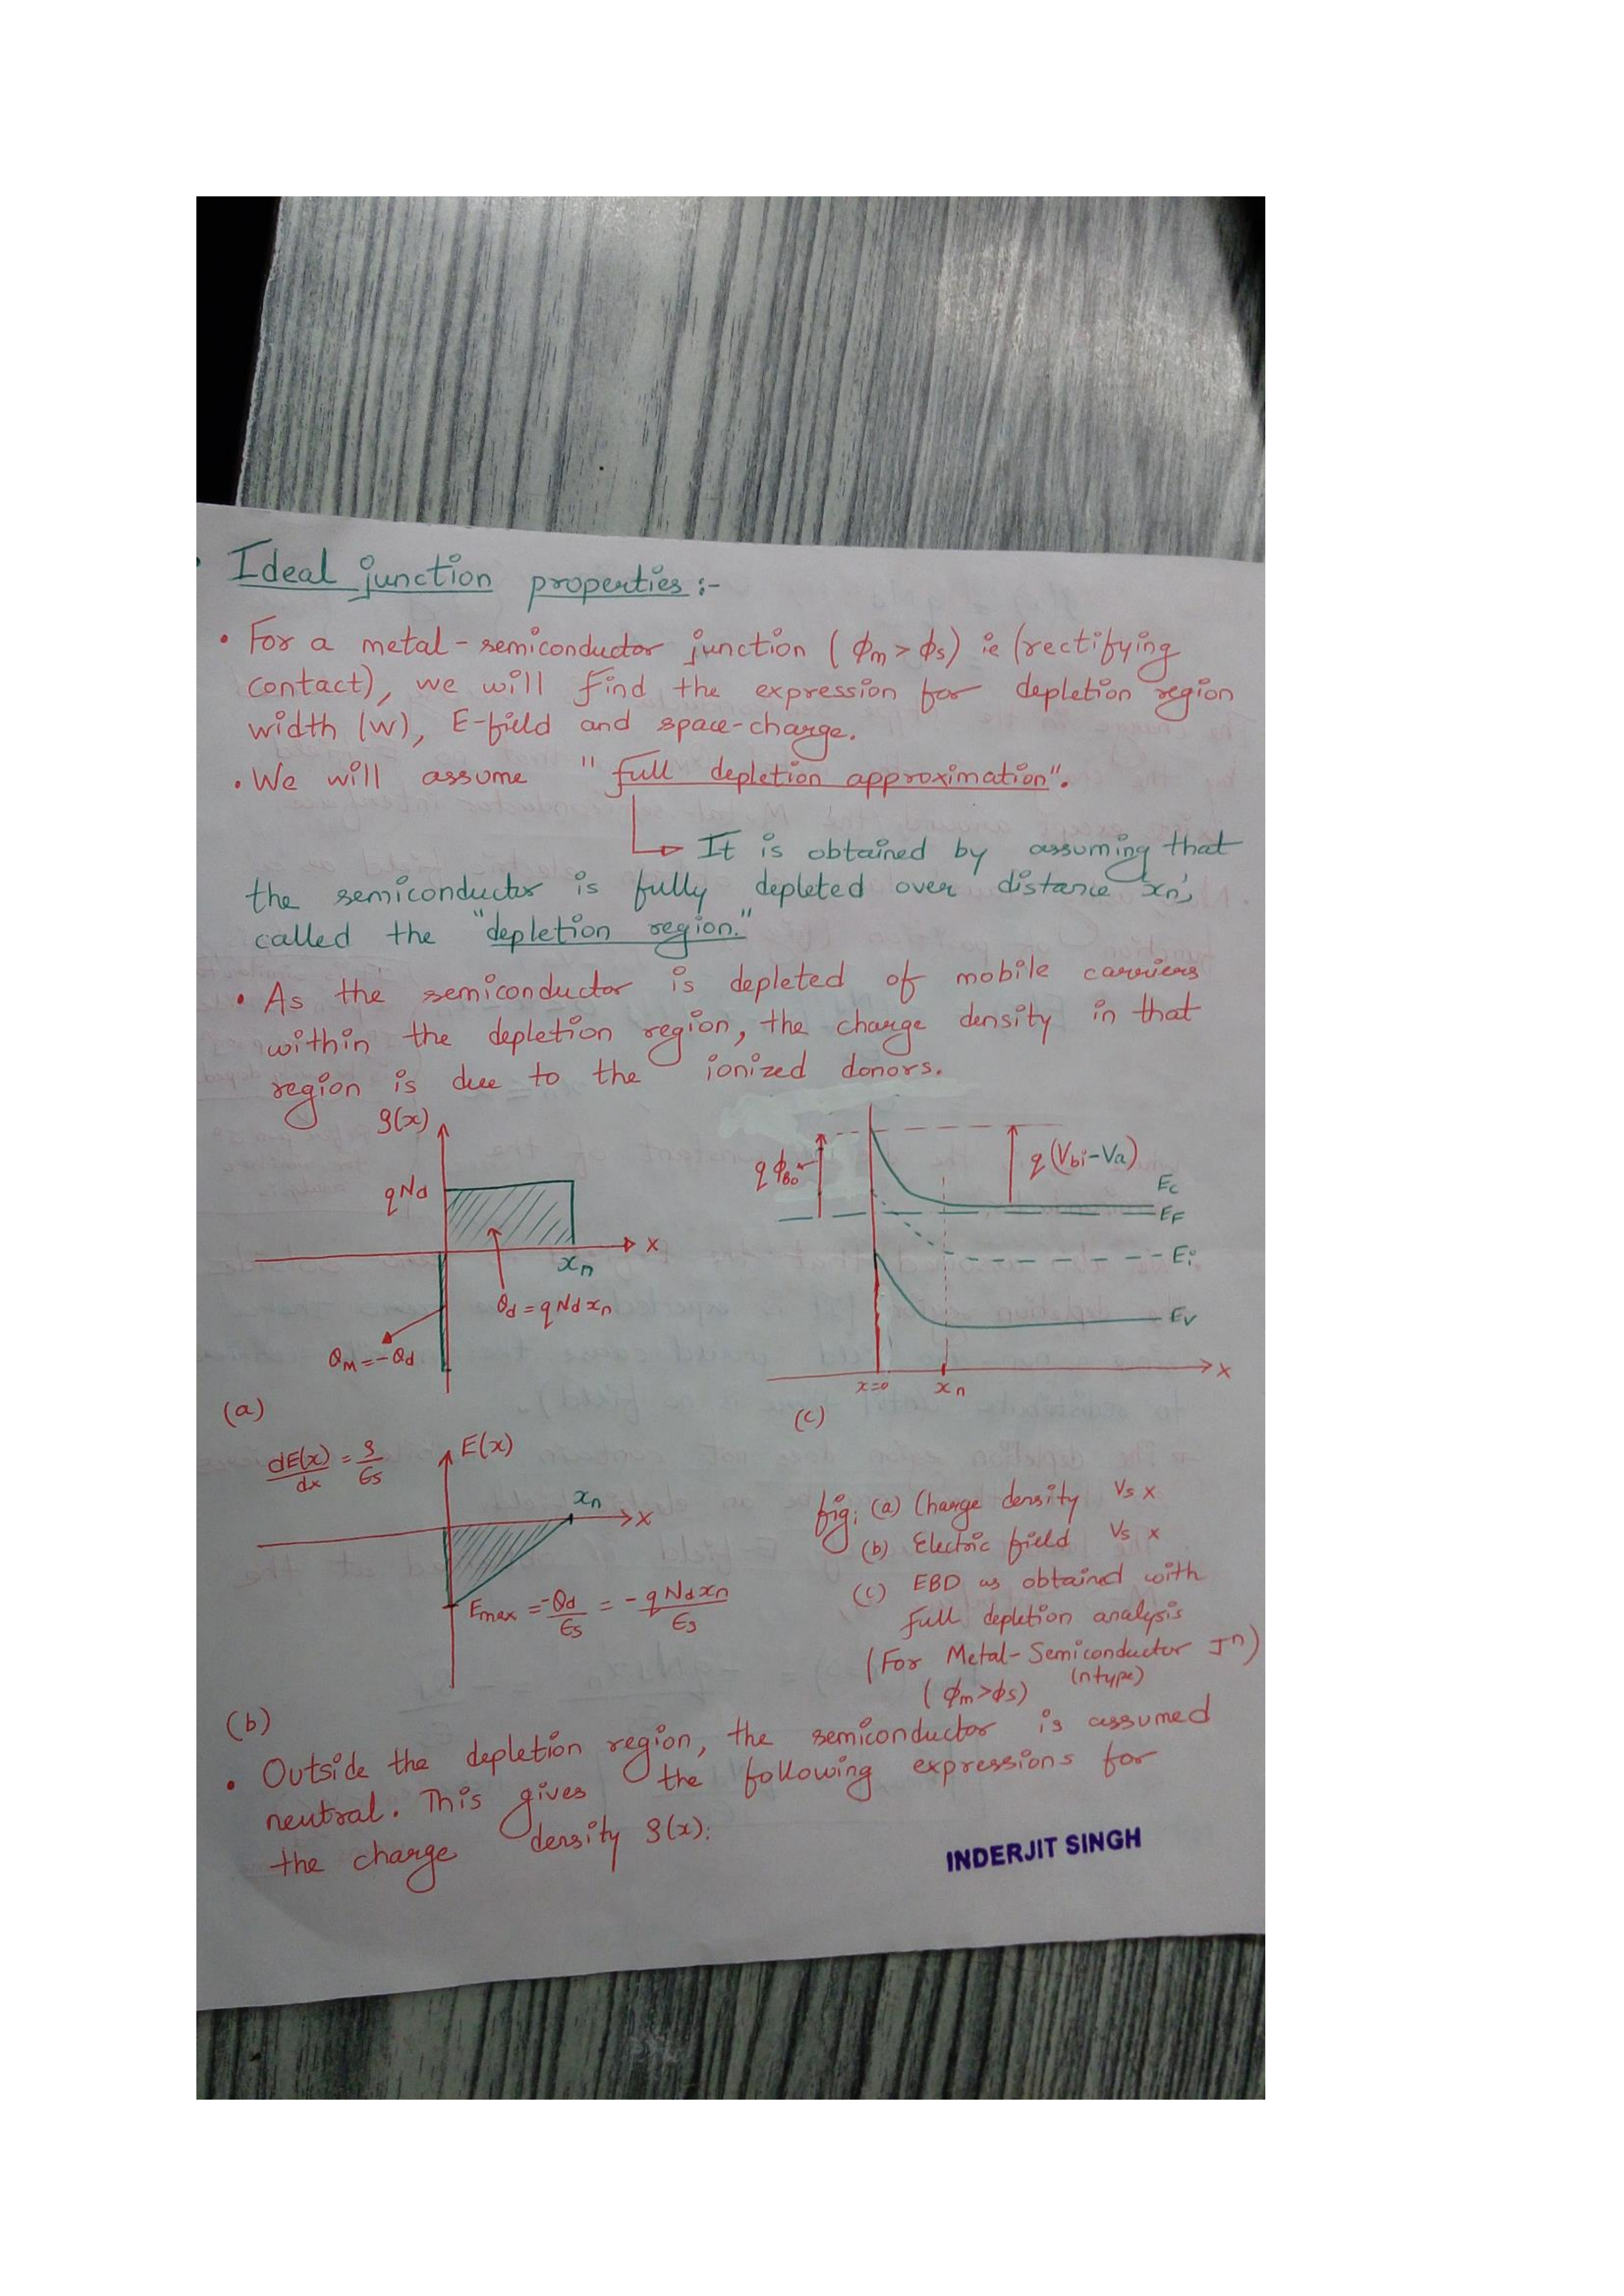 Ideal junction properties :-
• For a metal-semiconductor junction ( ϕm > ϕs) ie (rectifying
contact), we will find the expression for depletion region
width (W), E-field and space-charge.
• We will assume "full depletion approximation".
It is obtained by assuming that
the semiconductor is fully depleted over distance 'xn',
called the "depletion region."
• As the semiconductor is depleted of mobile carriers
within the depletion region, the charge density in that
region is due to the ionized donors.
ρ(x)
qNd
x
xn
Qd = qNdxn
QM = -Qd
(a)
qϕB0
q(Vbi-Va)
Ec
EF
Ei
Ev
x=0
xn
x
(c)
dE(x)/dx = ρ/ϵs
E(x)
xn
x
Emax = -Qd/ϵs = -qNdxn/ϵs
(b)
fig: (a) Charge density Vs x
(b) Electric field Vs x
(c) EBD as obtained with
full depletion analysis
(For Metal-Semiconductor Jn)
(ϕm>ϕs) (n type)
• Outside the depletion region, the semiconductor is assumed
neutral. This gives the following expressions for
the charge density ρ(x):
INDERJIT SINGH